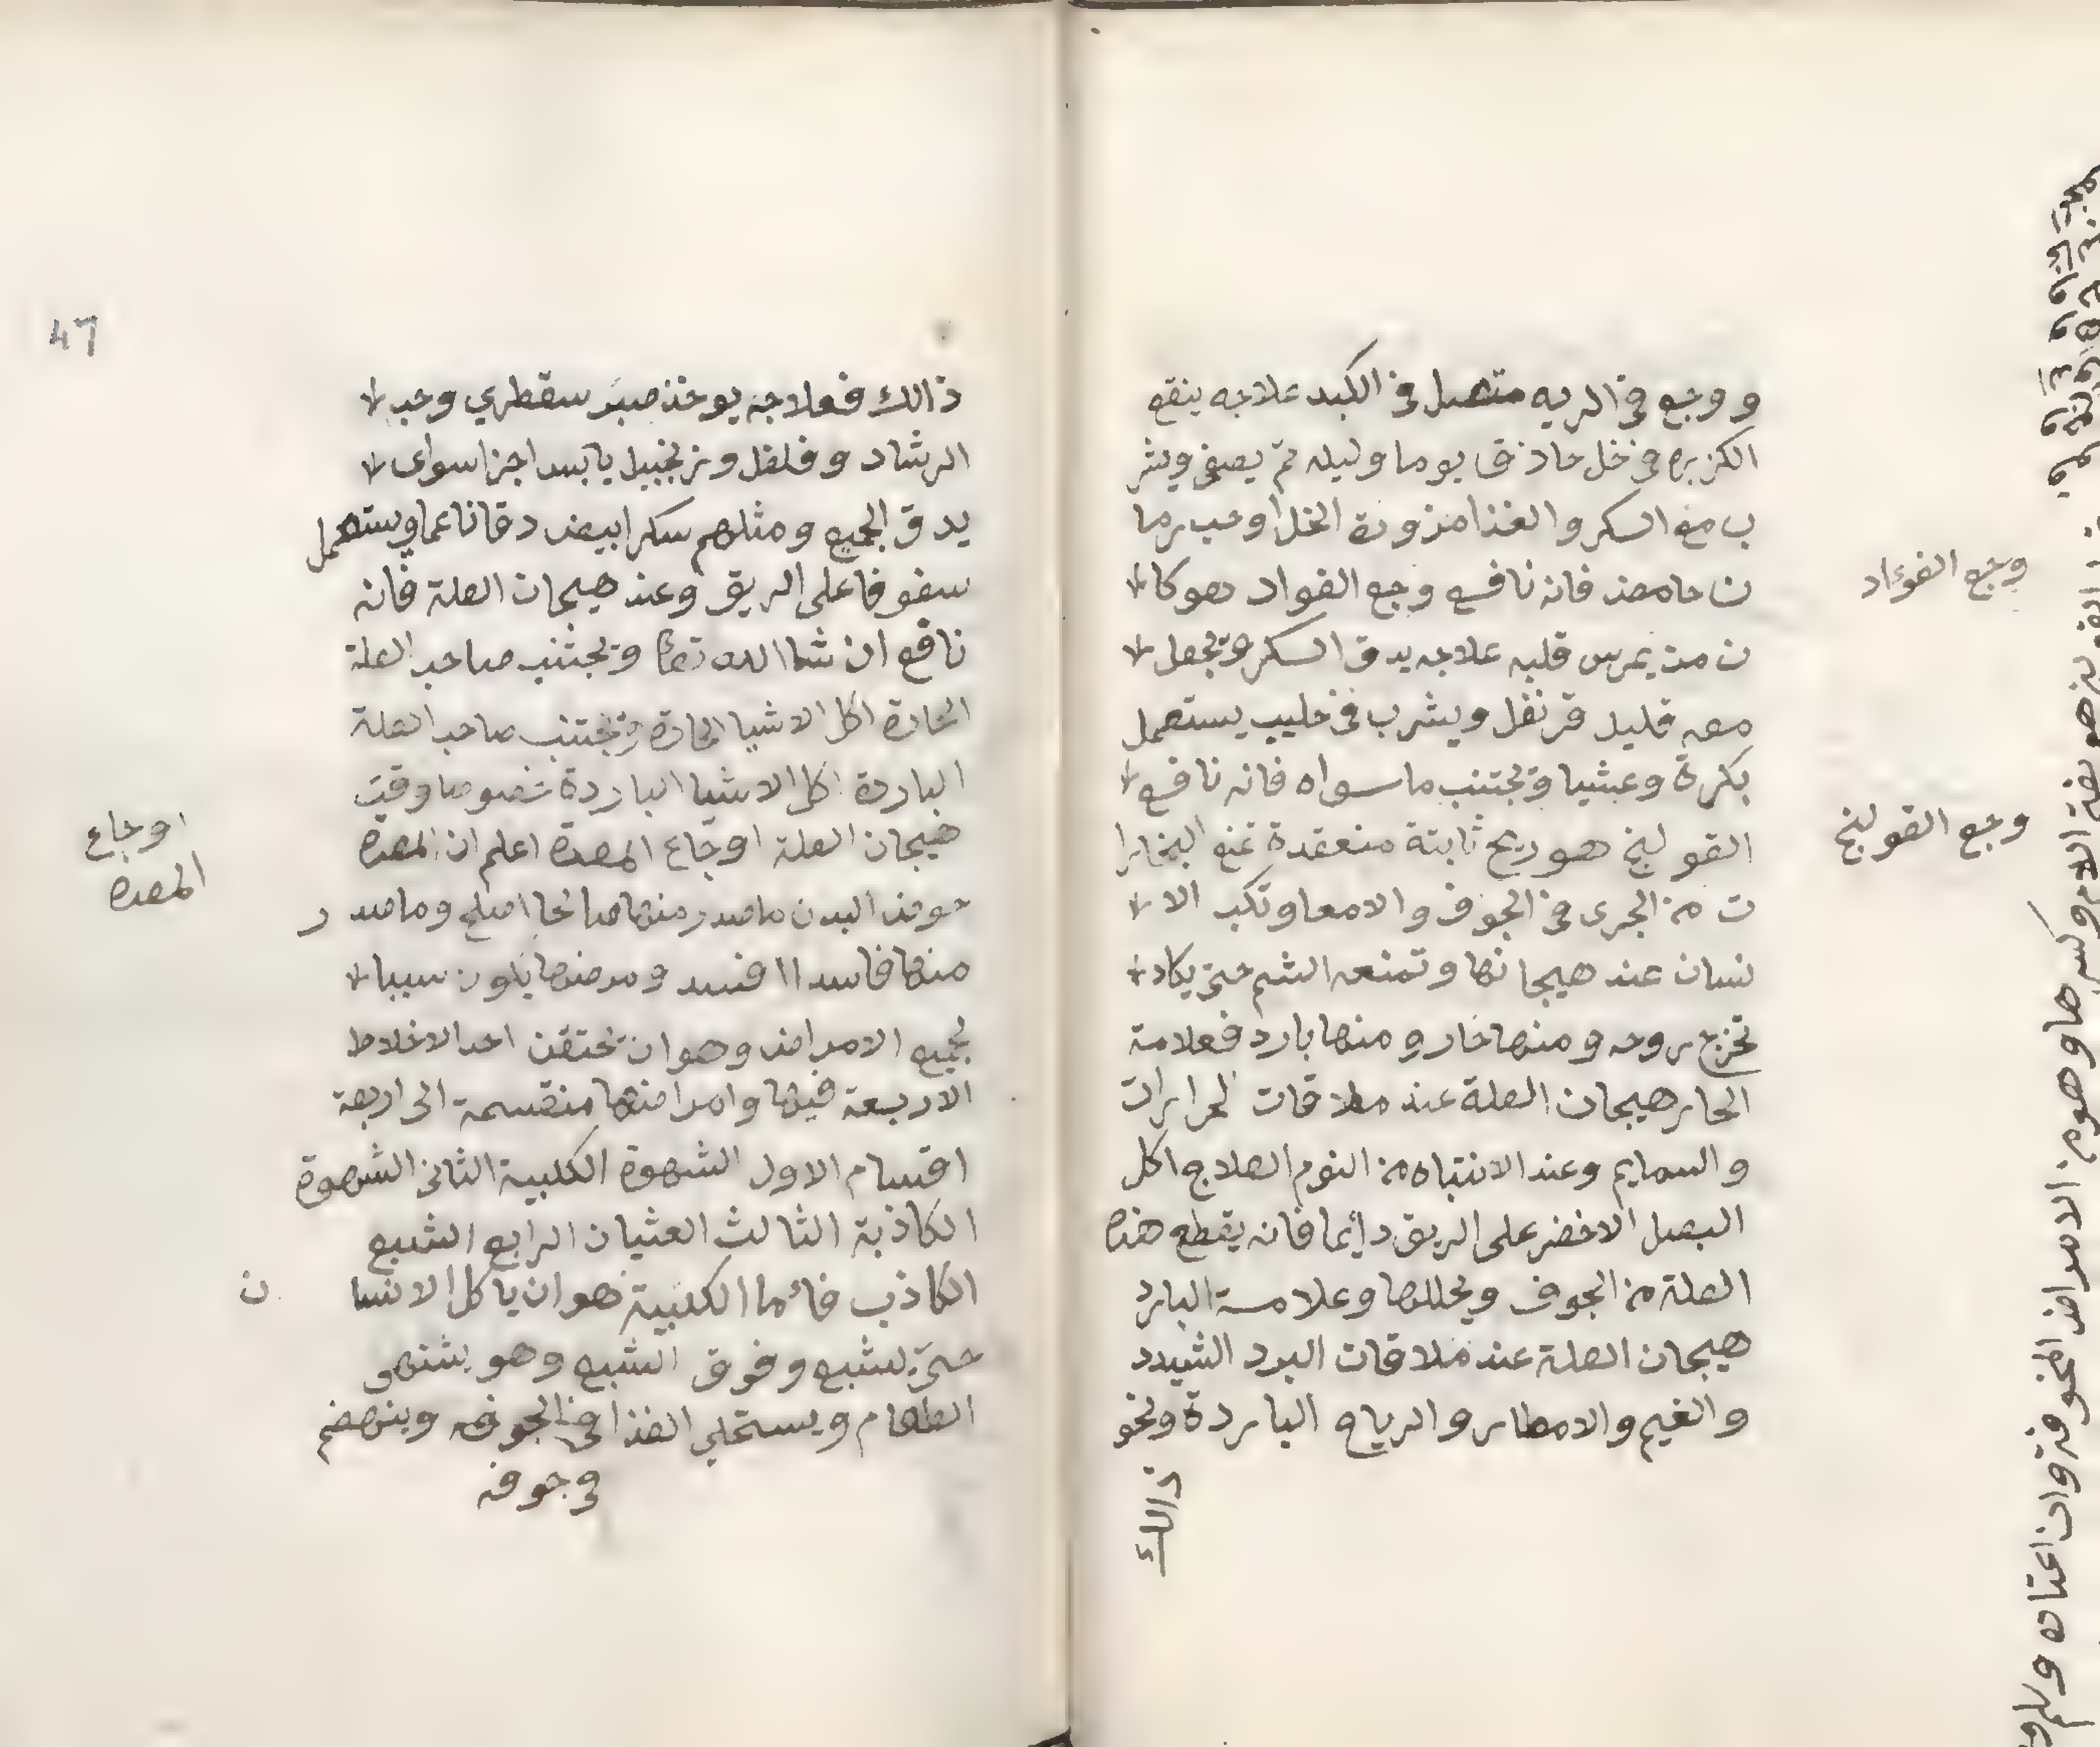 و وجع في الريه متصل في الكبد علاجه ينقع
الكزبره في خل حاذق يوما وليله ثم يصفى ويشر
ب مع السكر والغذا مزورة الخل او حب رما
ن حامض فانه نافع وجع الفواد هو كا
ن من يمرس قلبه علاجه يدق السكر ويجعل
معه قليل قرنفل ويشرب في حليب يستعمل
بكرة وعشيا ويجتنب ما سواه فانه نافع
القولنج هو ريح ثابتة منعقدة تمنع البخارا
ت من الجرى في الجوف والامعا وتكب الا
نسان عند هيجانها وتمنعه الشم حتى يكاد
تخرج روحه ومنها حار ومنها بارد فعلامة
الحار هيجان العلة عند ملاقات الحرارات
والسمايم وعند الانتباه من النوم العلاج اكل
البصل الاخضر على الريق دائما فانه يقطع هذه
العلة من الجوف ويحللها وعلامة البارد
هيجان العلة عند ملاقات البرد الشيدد
والغيم والامطار والرياح الباردة ونحو
ذالك
وجع الفوءاد
وجع القولنج
ذالك فعلاجه يوخذ صبر سقطري وحب
الرشاد وفلفل وزنجبيل يابس اجزا سواى
يدق الجميع ومثلهم سكر ابيض دقا ناعما ويستعمل
سفوفا على الريق وعند هيجان العلة فانه
نافع ان شا الله تعا ويجتنب صاحب العلة
الحارة اكل الاشيا الحارة ويجتنب صاحب العلة
الباردة اكل الاشيا الباردة خصوصا وقت
هيجان العلة اوجاع المعدة اعلم ان المعدة
حوض البدن ما صدر منها صالحا اصلح وما صد ر
منها فاسدا افسد ومرضها يكون سببا
لجميع الامراض وهو ان تحتقن احد الاخلاط
الاربعة فيها وامراضها منقسمة الى اربعة
اقسام الاول الشهوة الكلبية الثاني الشهوة
الكاذبة الثالث العثيان الرابع الشبع
الكاذب فائما الكلبية فهو ان ياكل الانسا ن
حتى يشبع وفوق الشبع وهو يشتهى
الطعام ويستحلي الغذا في الجوفه وينهضم
في جوفه
اوجاع
المعده
47